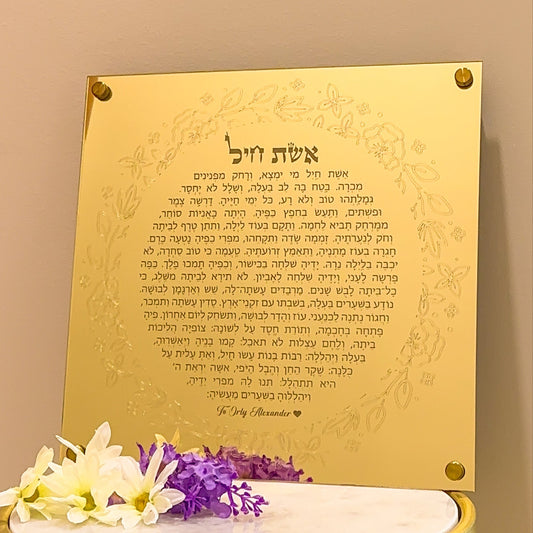 אשת חיל
אשת חיל מי ימצא, ורחק מפנינים
מכרה. בטח בה לב בעלה, ושלל לא יחסר.
גמלתהו טוב ולא רע, כל ימי חייה. דרשה צמר
ופשתים, ותעש בחפץ כפיה. היתה כאניות סוחר,
ממרחק תביא לחמה. ותקם בעוד לילה, ותתן טרף לביתה
וחק לנערתיה. זממה שדה ותקחהו, מפרי כפיה נטעה כרם.
חגרה בעוז מתניה, ותאמץ זרועתיה. טעמה כי טוב סחרה, לא
יכבה בלילה נרה. ידיה שלחה בכישור, וכפיה תמכו פלך. כפה
פרשה לעני, וידיה שלחה לאביון. לא תירא לביתה משלג, כי
כל־ביתה לבש שנים. מרבדים עשתה־לה, שש וארגמן לבושה.
נודע בשערים בעלה, בשבתו עם זקני־ארץ. סדין עשתה ותמכר,
וחגור נתנה לכנעני. עוז והדר לבושה, ותשחק ליום אחרון. פיה
פתחה בחכמה, ותורת חסד על לשונה: צופיה הליכות
ביתה, ולחם עצלות לא תאכל: קמו בניה ויאשרוה,
בעלה ויהללה: רבות בנות עשו חיל, ואת עלית על
כלנה: שקר החן והבל היפי, אשה יראת ה׳
היא תתהלל: תנו לה מפרי ידיה,
ויהללוה בשערים מעשיה:
To Orly Alexander